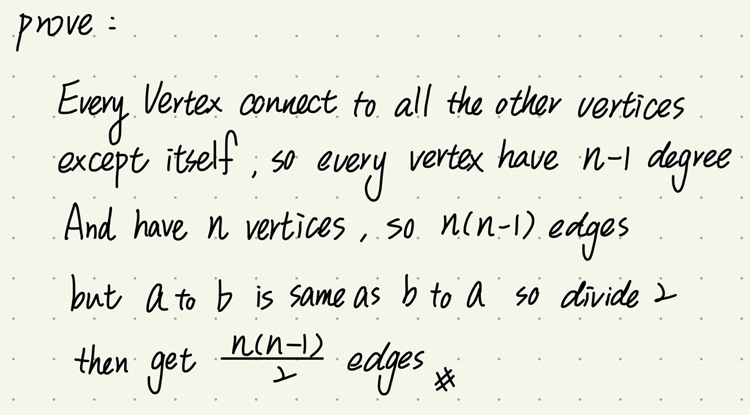 prove :
Every Vertex connect to all the other vertices
except itself , so every vertex have n-1 degree
And have n vertices , so n(n-1) edges
but a to b is same as b to a so divide 2
then get n(n-1)/2 edges #